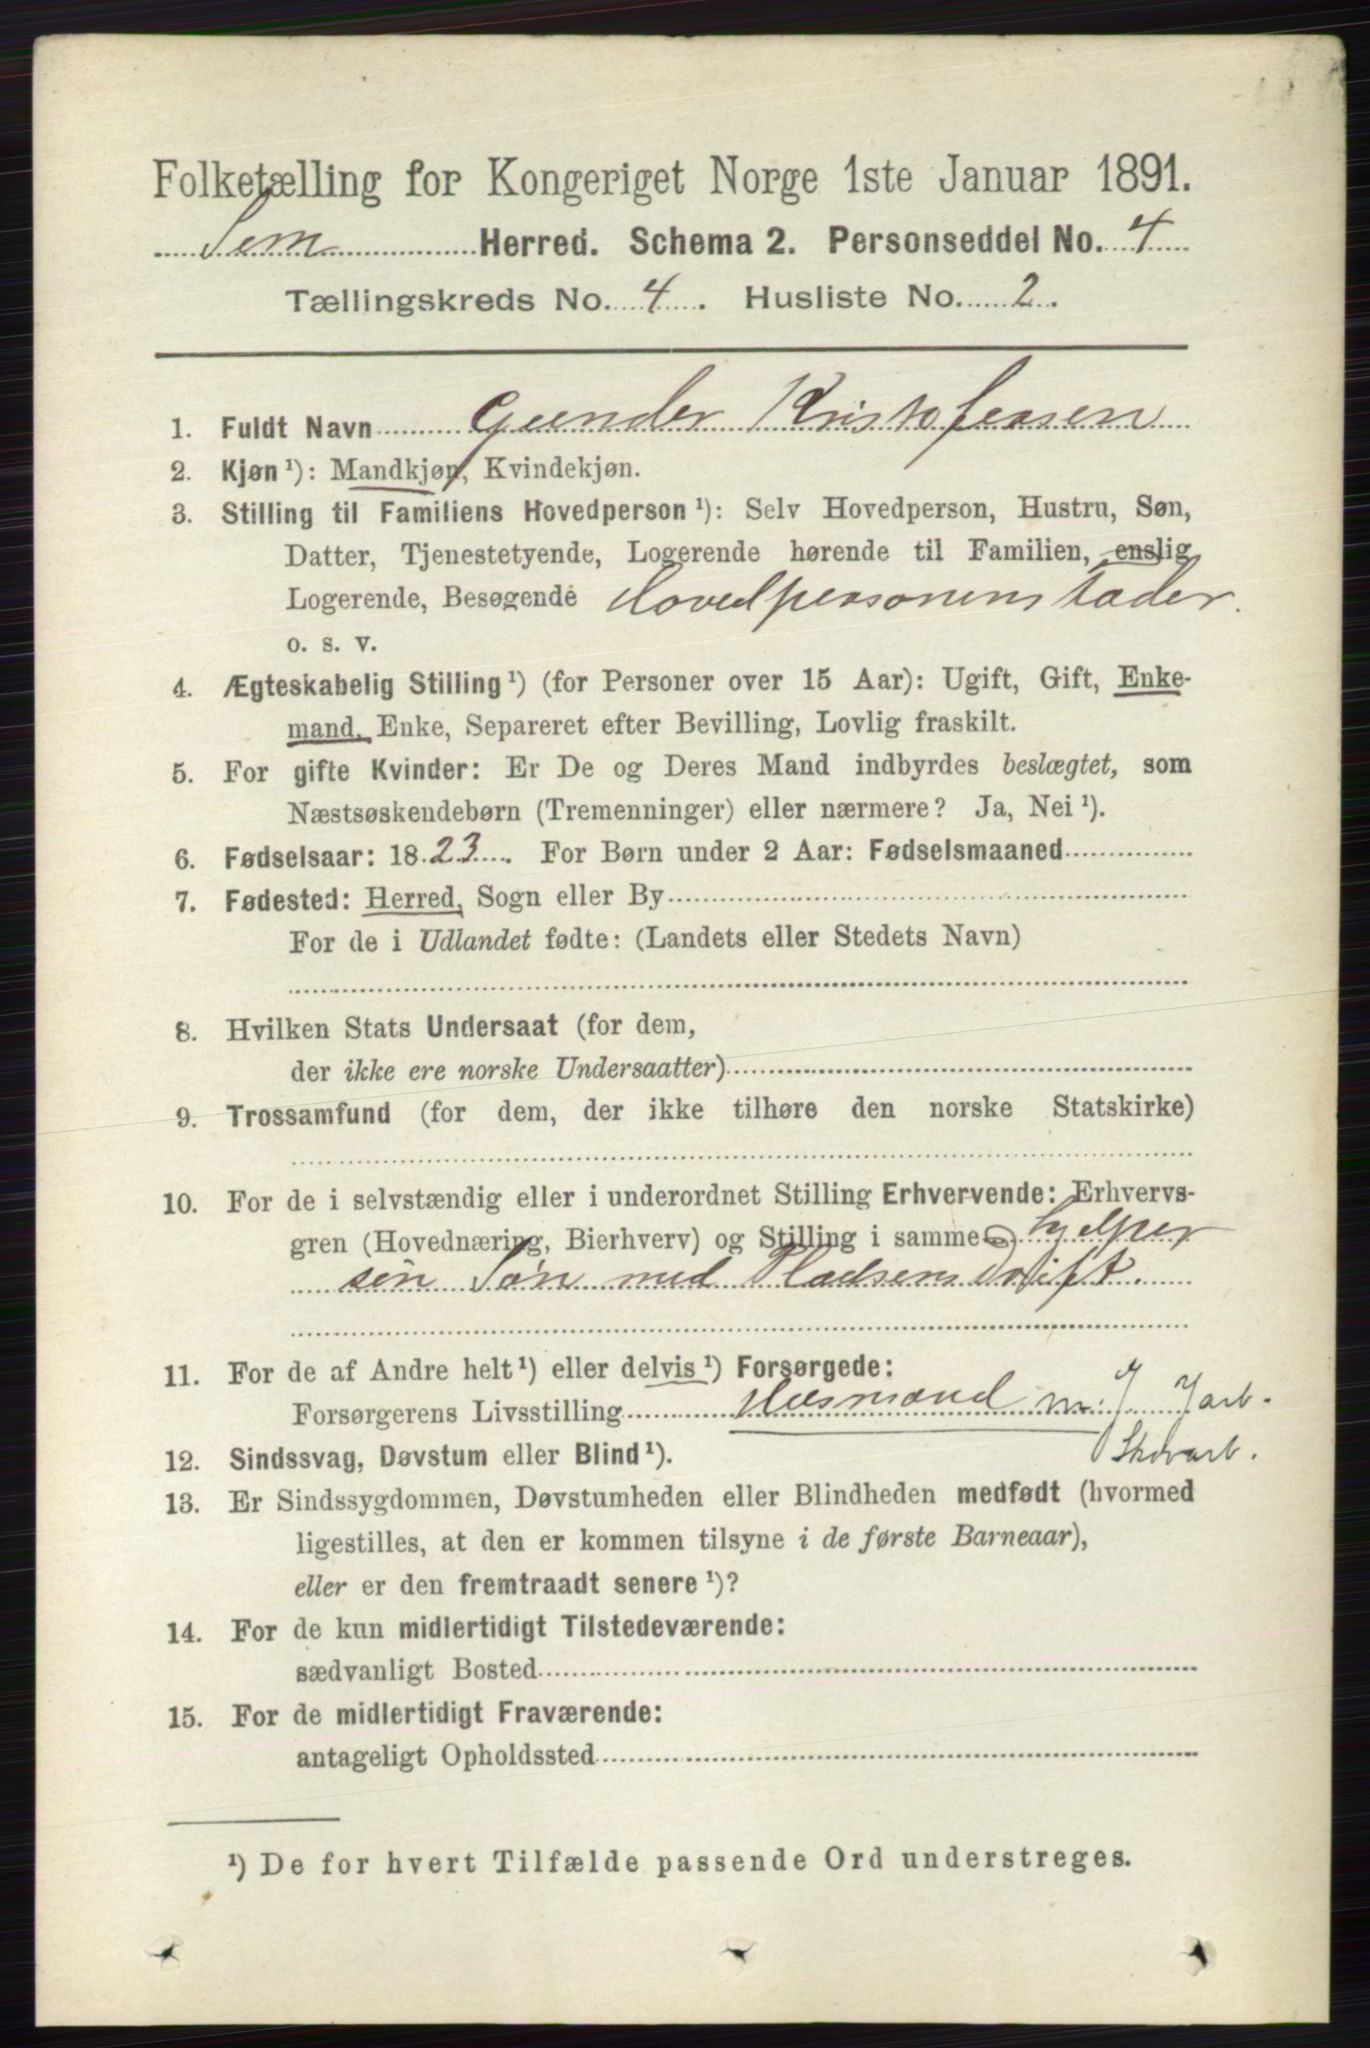 Folketælling for Kongeriget Norge 1ste Januar 1891.
Sem Herred. Schema 2. Personseddel No. 4
Tællingskreds No. 4. Husliste No. 2.
1. Fuldt Navn Gunder Kristofersen
2. Kjøn ¹): Mandkjøn, Kvindekjøn.
3. Stilling til Familiens Hovedperson ¹): Selv Hovedperson, Hustru, Søn,
Datter, Tjenestetyende, Logerende hørende til Familien, enslig
Logerende, Besøgende Hovedpersonens fader.
o. s. v.
4. Ægteskabelig Stilling ¹) (for Personer over 15 Aar): Ugift, Gift, Enke-
mand, Enke, Separeret efter Bevilling, Lovlig fraskilt.
5. For gifte Kvinder: Er De og Deres Mand indbyrdes beslægtet, som
Næstsøskendebørn (Tremenninger) eller nærmere? Ja, Nei ¹).
6. Fødselsaar: 1823. For Børn under 2 Aar: Fødselsmaaned
7. Fødested: Herred, Sogn eller By
For de i Udlandet fødte: (Landets eller Stedets Navn)
8. Hvilken Stats Undersaat (for dem,
der ikke ere norske Undersaatter)
9. Trossamfund (for dem, der ikke tilhøre den norske Statskirke)
10. For de i selvstændig eller i underordnet Stilling Erhvervende: Erhvervs-
gren (Hovednæring, Bierhverv) og Stilling i samme) hjelper
sin Søn med Pladsens drift.
11. For de af Andre helt ¹) eller delvis ¹) Forsørgede:
Forsørgerens Livsstilling Husmand m. J. Jarb.
Skovarb.
12. Sindssvag, Døvstum eller Blind ¹).
13. Er Sindssygdommen, Døvstumheden eller Blindheden medfødt (hvormed
ligestilles, at den er kommen tilsyne i de første Barneaar),
eller er den fremtraadt senere ¹)?
14. For de kun midlertidigt Tilstedeværende:
sædvanligt Bosted
15. For de midlertidigt Fraværende:
antageligt Opholdssted
¹) De for hvert Tilfælde passende Ord understreges.